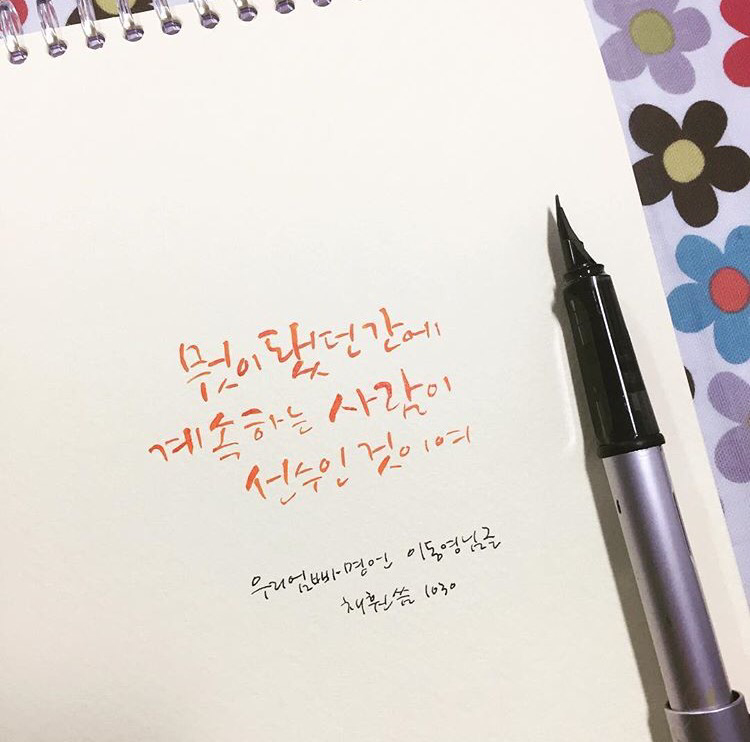 뭣이 됐던간에
계속하는 사람이
선수인 것이여
우리엄빠명언 이동영님글
채훤씀 1030